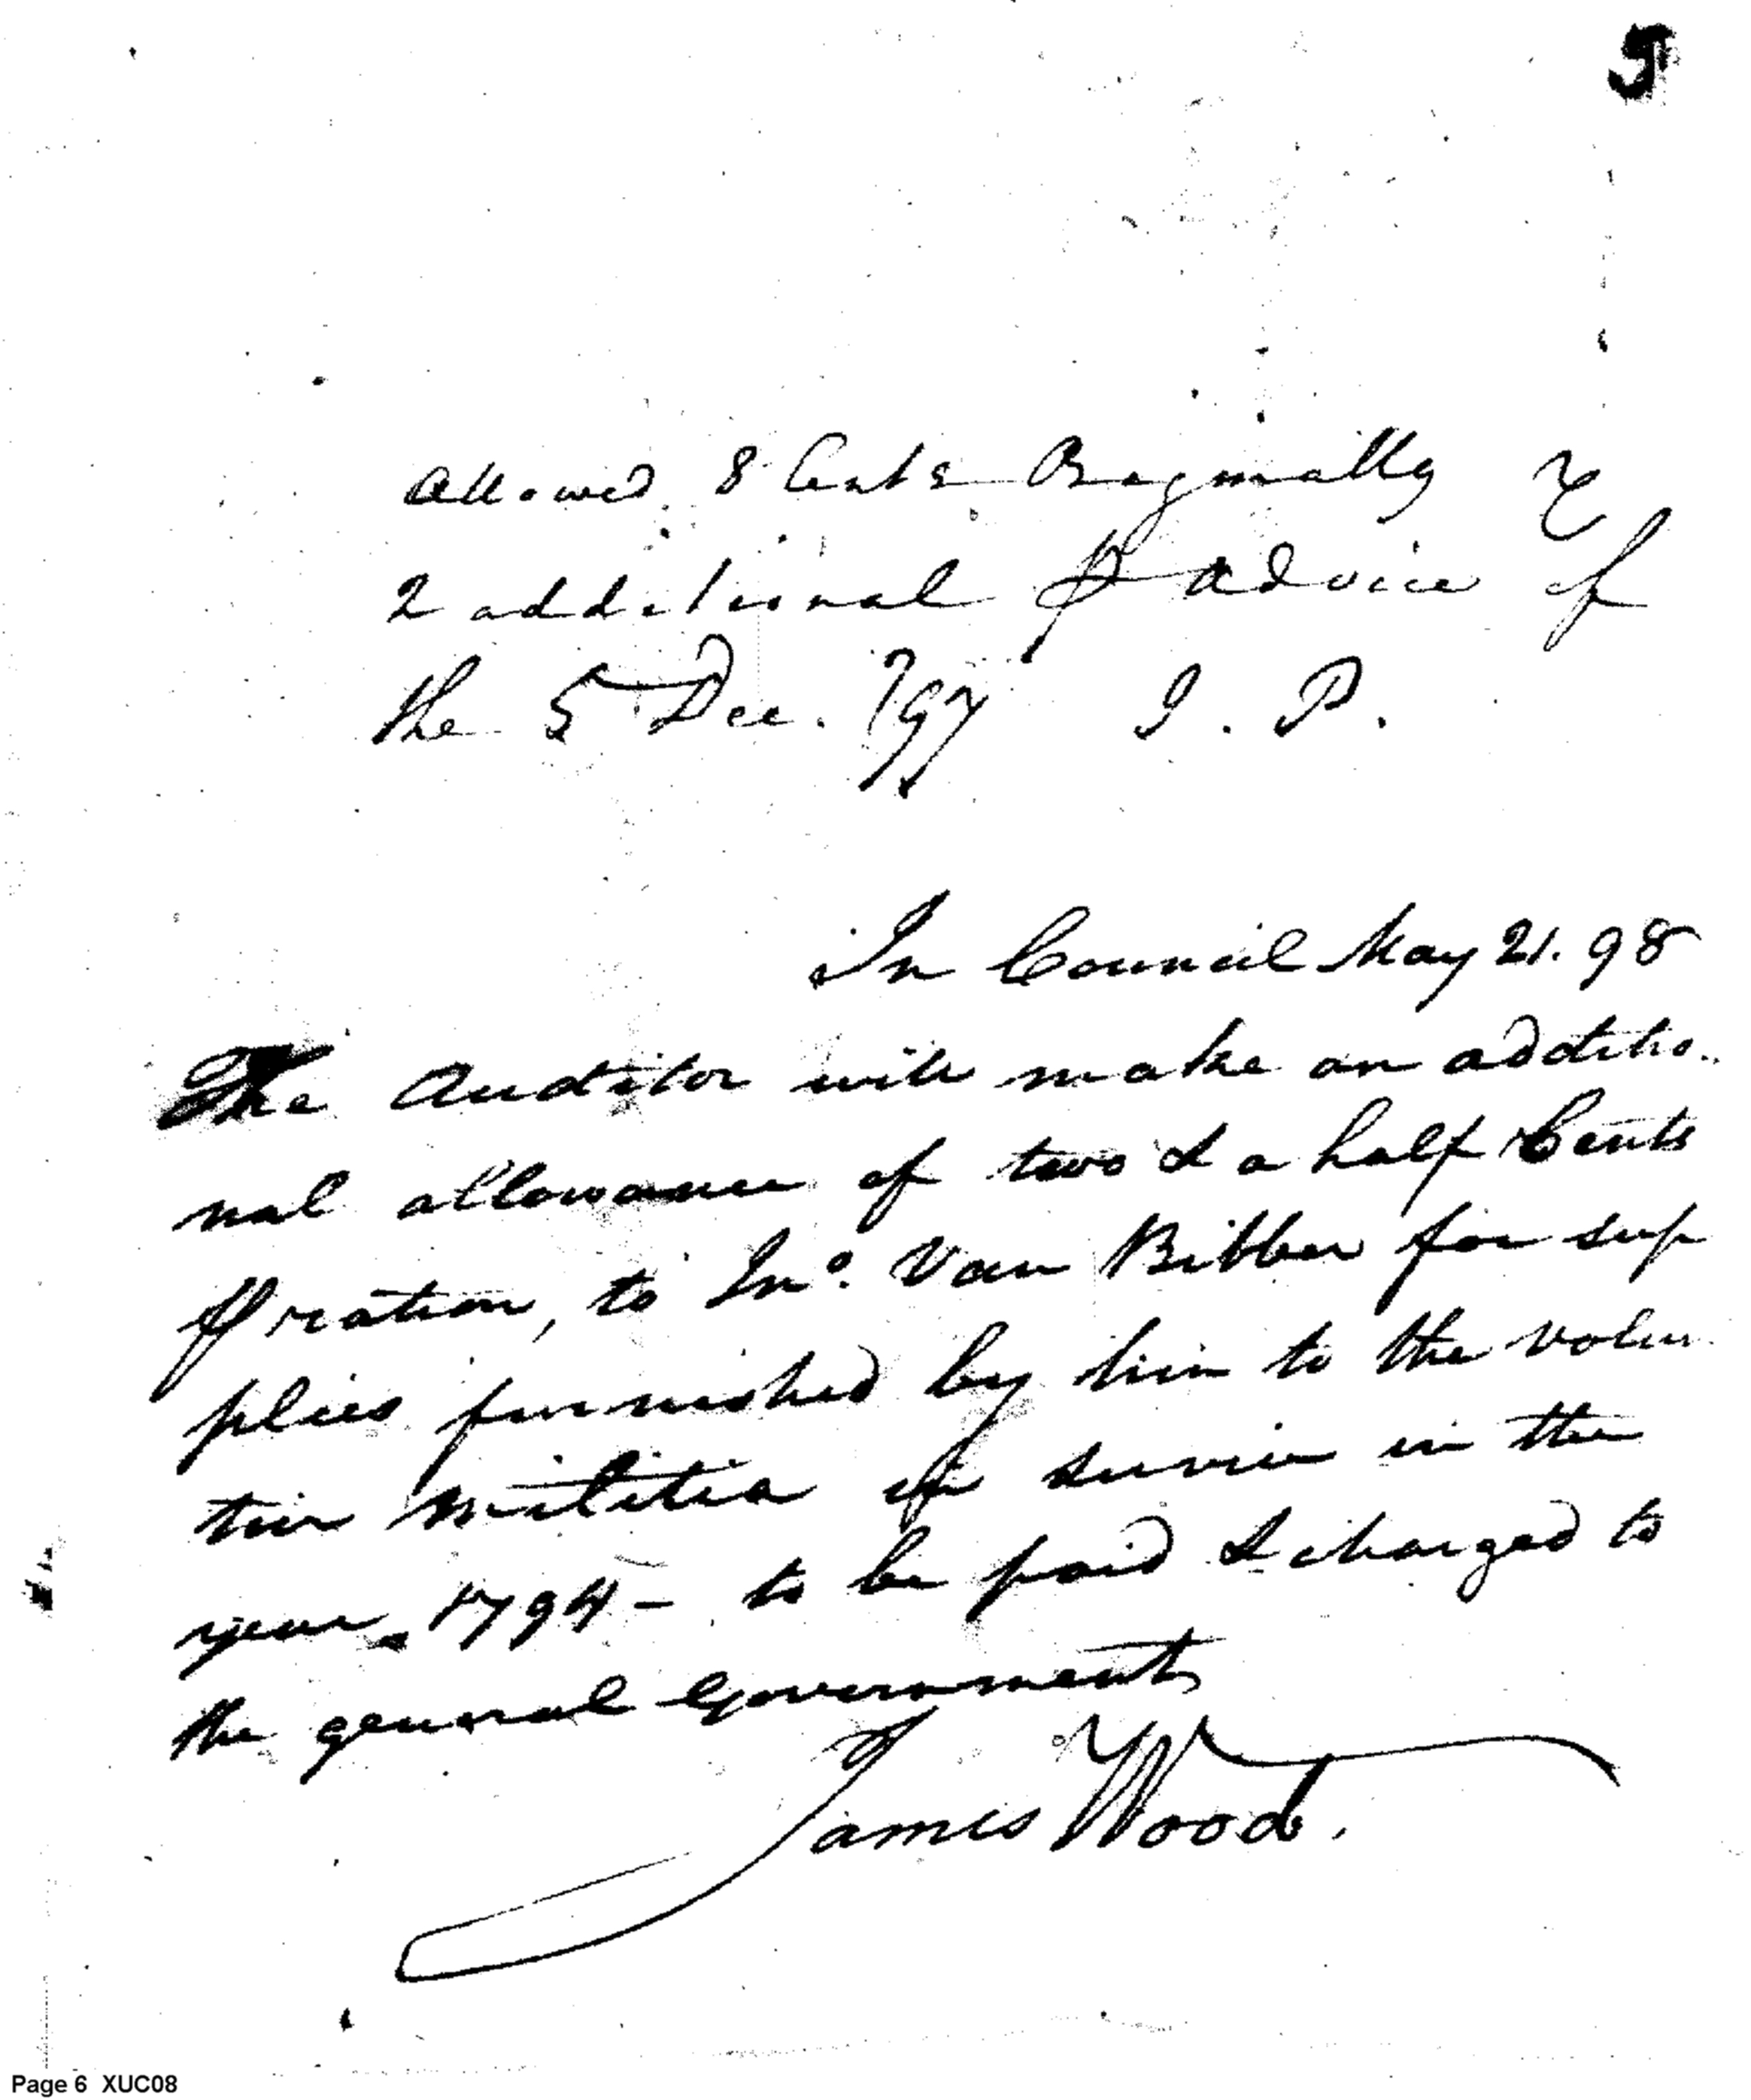 5
Allowed 8 Cents Originally &
2 additional ⅌ advice of
the 5 Dec. 797 J. P.
In Council May 21. 98
The Auditor will make an additio-
nal allowance of two & a half Cents
⅌ ration, to Jno. Van Bibber for sup
plies furnished by him to the volun
tier militia in service in the
year 1794 - to be paid & charged to
the general Government
James Wood.
Page 6 XUC08